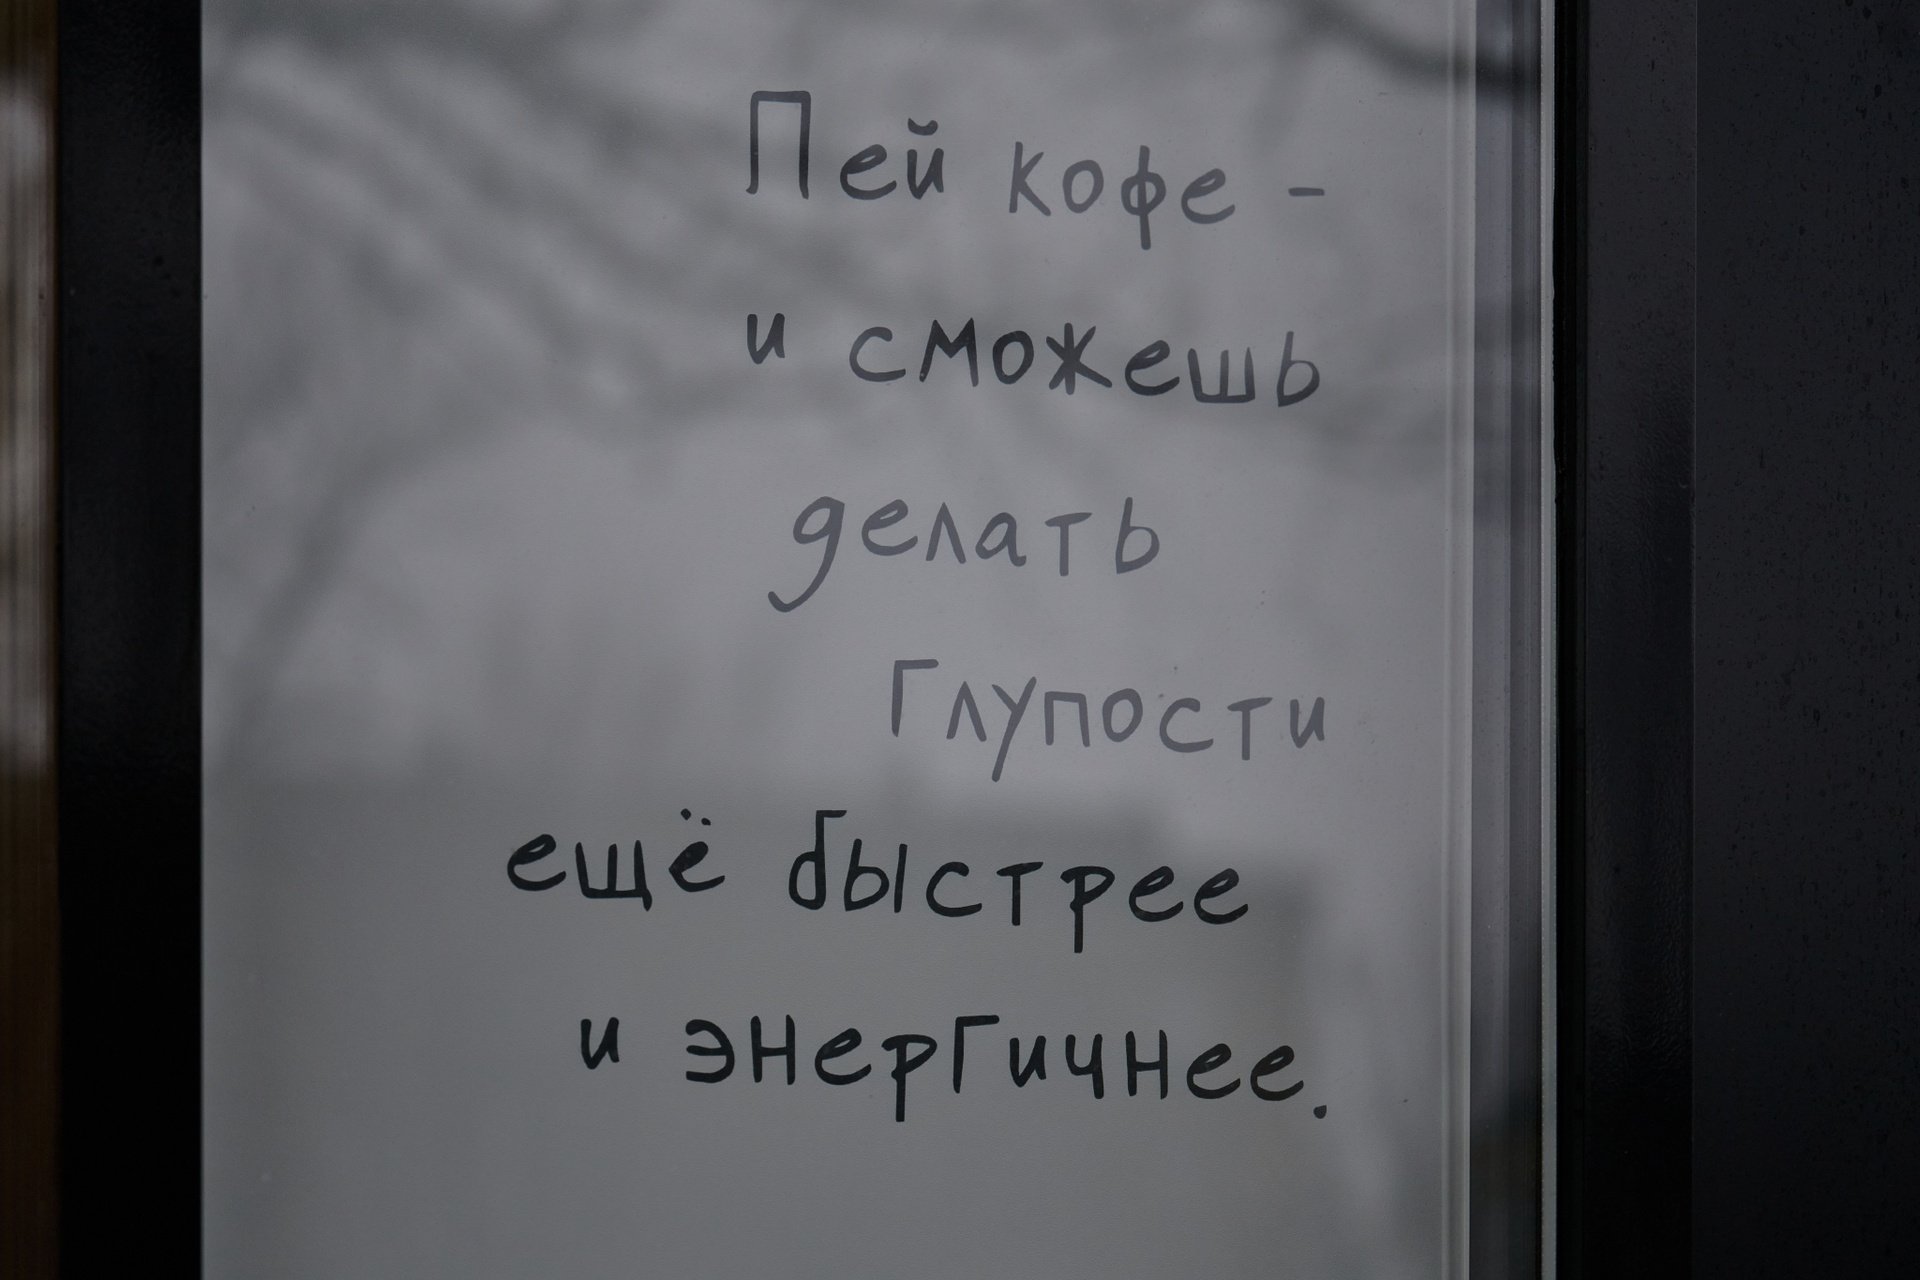 Пей кофе -
и сможешь
делать
Глупости
ещё быстрее
и энергичнее.